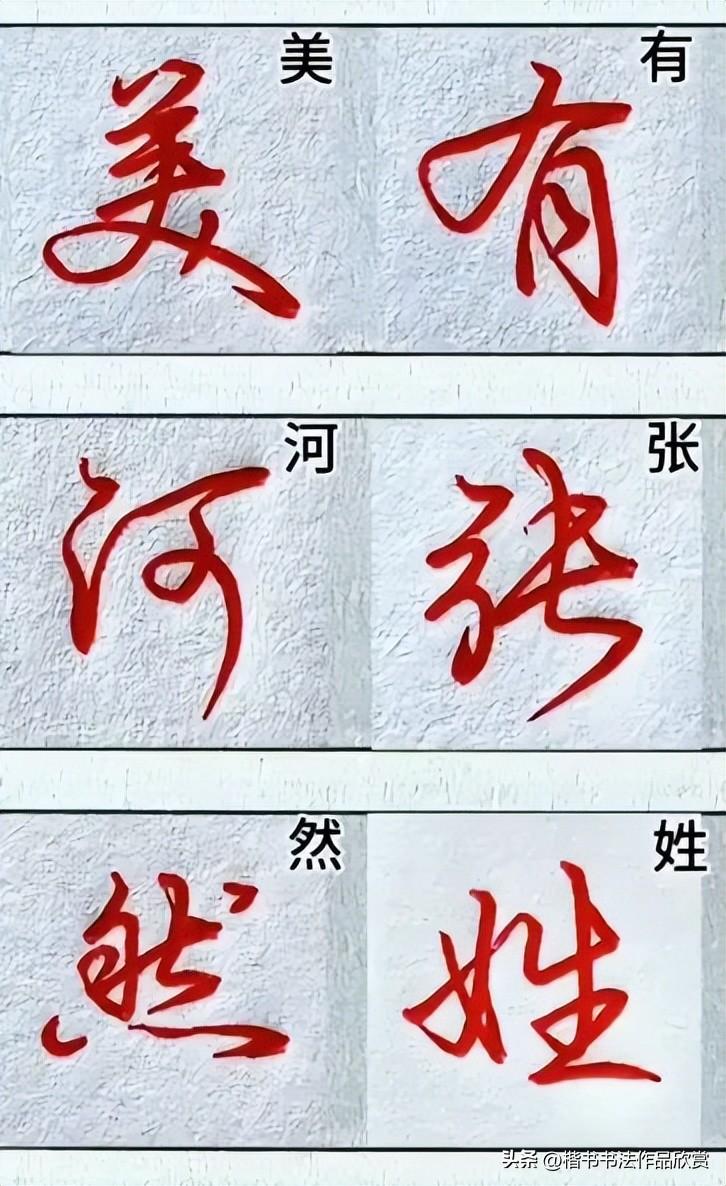 美 有
美 有
河 张
河 张
然 姓
然 姓
头条 @楷书书法作品欣赏